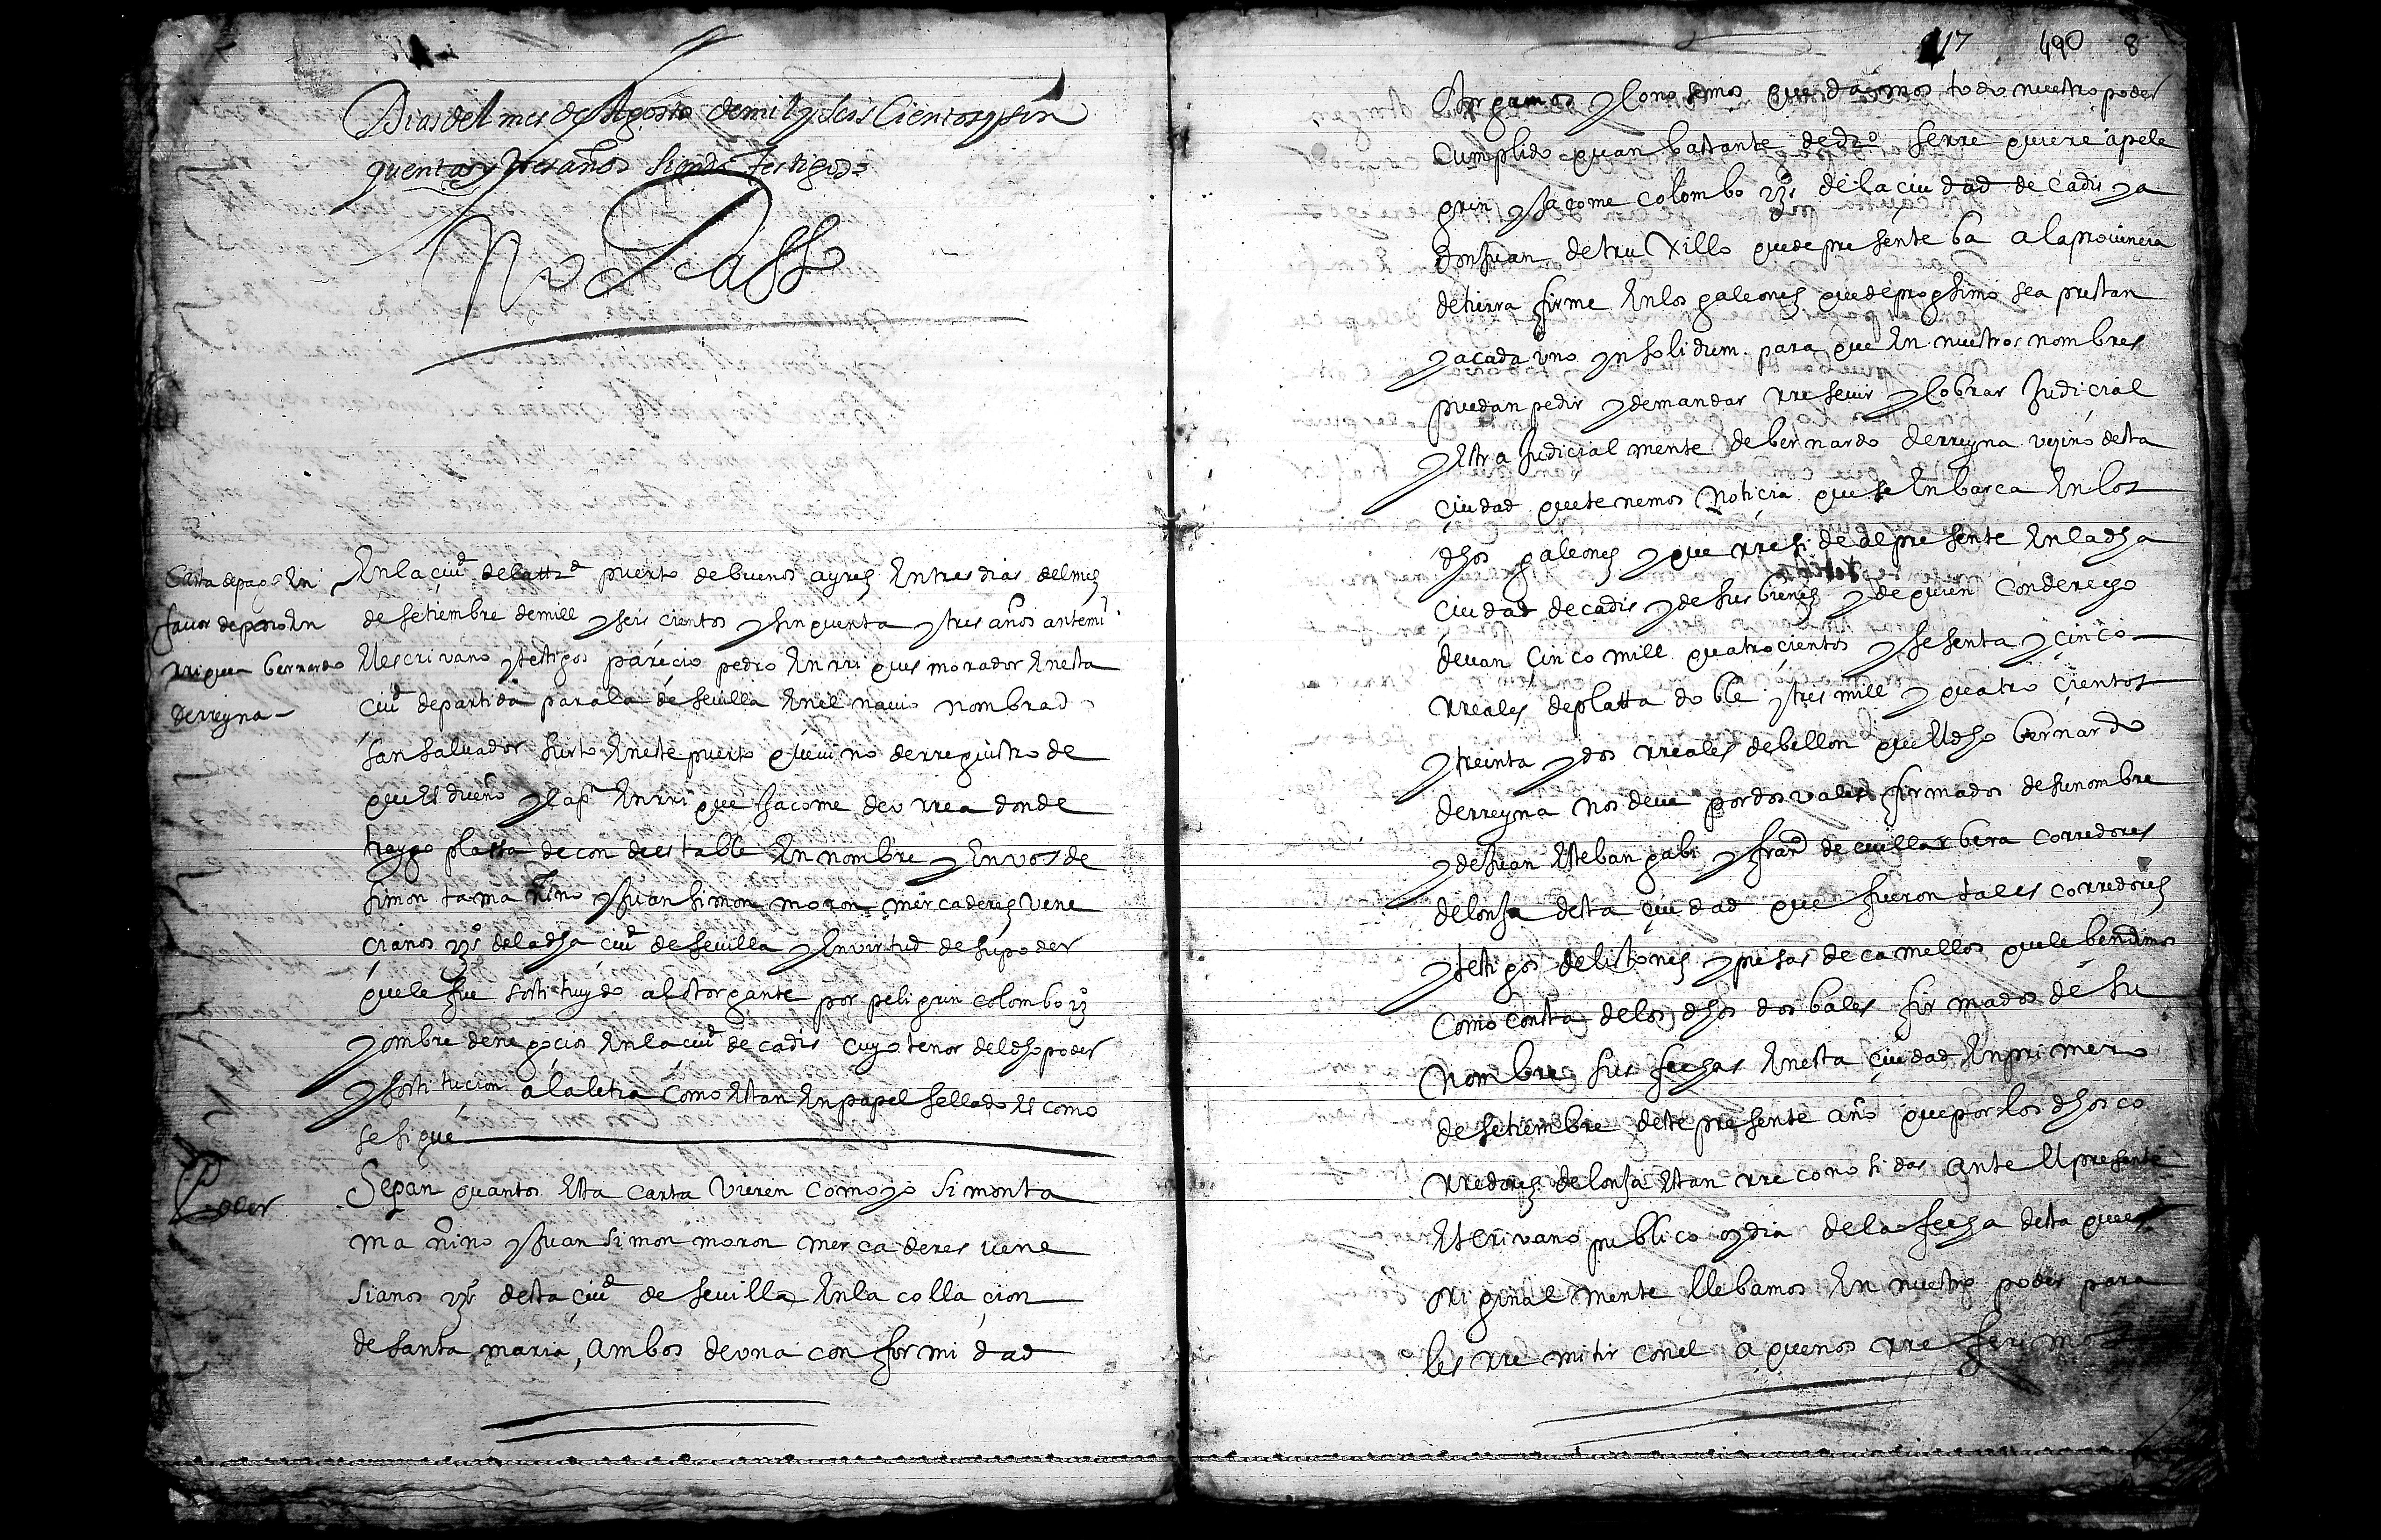 Dias del mes de Agosto de mil y seis Cientos y sin
quentas y tres años siendo testigos=
No Passo
Carta de pago En
favor de pedro En
rriques bernardo
derreyna
En la ciud de la ttrd puerto de buenos ayres En tres dias del mes
de setiembre de mill y seis cientos y sinquenta y tres años ante mi
El escrivano y testigos parecio pedro Enrriques morador En esta
ciud de partida para la de sevilla En el navio nombrado
san salvador surto En este puerto que vino de rregistro de
que Es dueño y capn Enrrique Jacome de donde
traygo platta de con En nombre y En vos de
simon tama nino y Juan simon moron mercaderes vene
cianos vzos de la dha ciud de sevilla y En virtud de su poder
que le fue sostituydo al otorgante por peligrin colombo vzo
y ombre de negocios En la ciud de cadis cuyo tenor del dho poder
y sostitucion a la letra como Estan En papel sellado Es como
se sigue
Poder
Sepan quantos Esta carta vieren como yo simon ta
ma nino y Juan simon moron mercaderes vene
sianos vzos desta ciud de sevilla En la collacion
de santa maria, ambos de una conformidad
117 490 8
Otorgamos y conosemos que damos todo nuestro poder
cumplido quan bastante de dro se rrequiere a pele
grin y Jacome colombo vzos de la ciudad de cadis y a
don Juan de truxillo que de presente ba a la provincia
de tierra firme En los galeones que de progsimo se aprestan
y a cada uno yn solidum para que En nuestros nombres
puedan pedir y demandar rresevir y cobrar Judicial
y Estra Judicialmente de bernardo derreyna vezino desta
ciudad que tenemos noticia que se Enbarca En los
dhos galeones y que rreside al presente En la dha
ciudad de cadis y de sus bienes y de quien con derecho
devan cinco mill quatrocientos y sesenta y cinco
rreales de platta doble y tres mill y quatro cientos
y treinta y dos rreales de bellon que El dho bernardo
derreyna nos deve por dos vales firmados de su nombre
y de Juan Esteban gabi y franco de corredores
de lonja desta ciudad que fueron tales corredores
y testigos de listones y piesas de camellos que le bendimos
como consta de los dhos dos bales firmados de su
nombre sus fechas En esta ciudad En primero
de setiembre deste presente año que por los dhos co
rredores de lonja Estan rreconosidas ante El presente
Escrivano publico oy dia de la fecha desta que
originalmente llebamos En nuestro poder para
les rremitir con el a que nos rreferimos